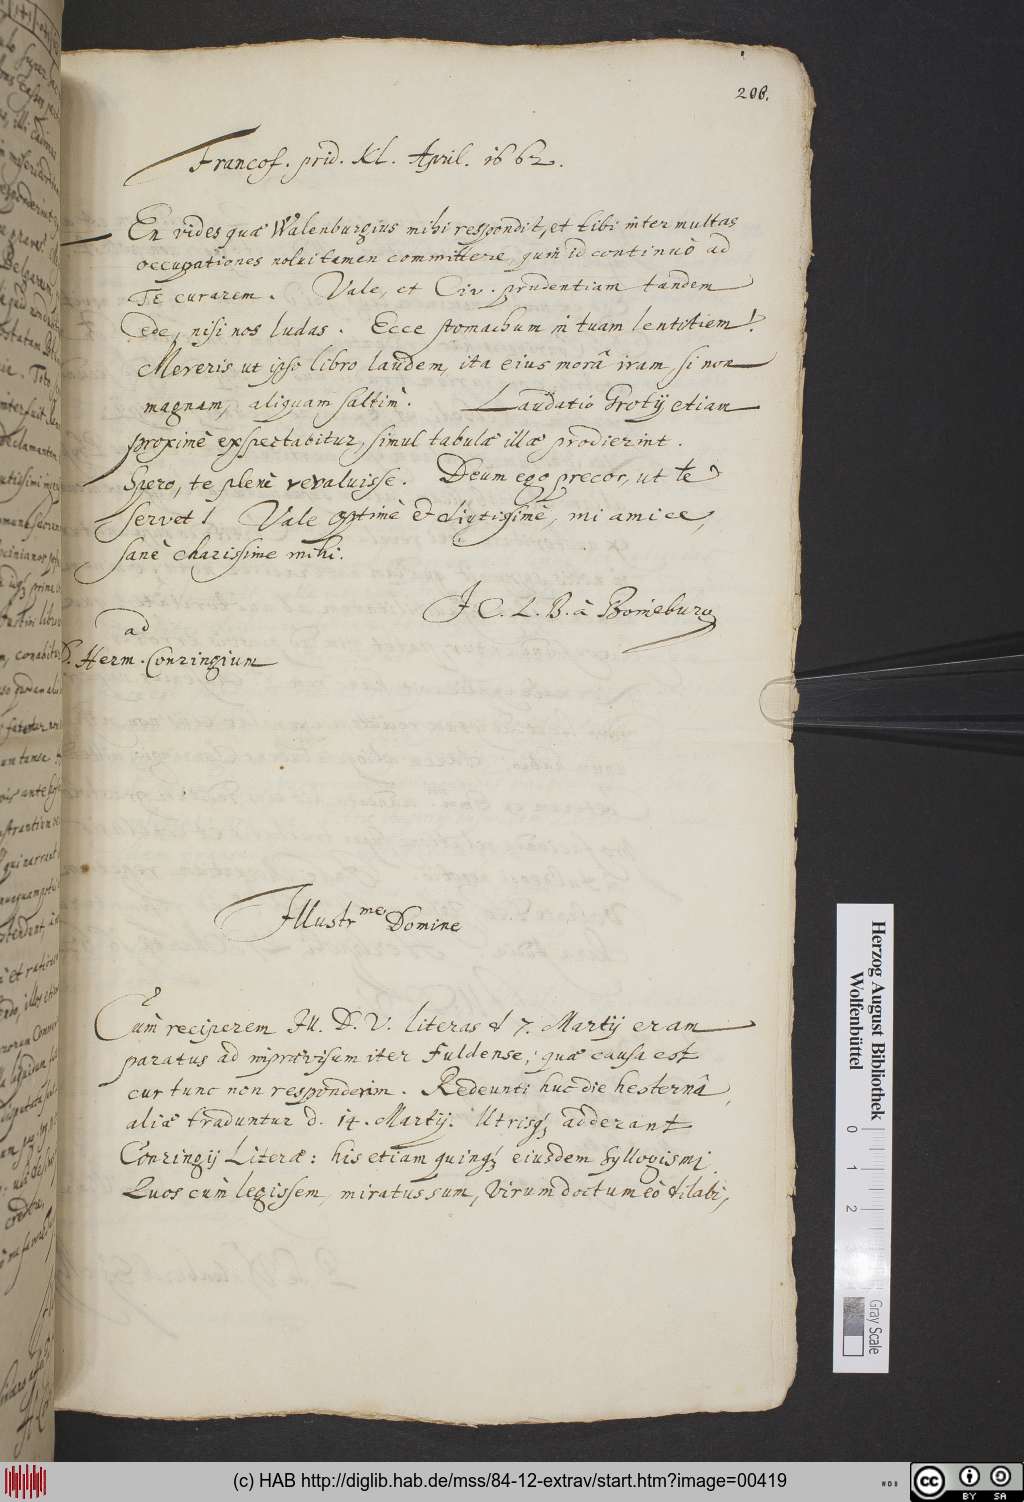 208.
Francof. prid. Kl. April. 1662.
En vides quæ Walenburgius mihi respondit, et tibi inter multas
occupationes nolui tamen committere, quin id continuò ad
TE curarem. Vale, et Civ. prudentiam tandem
ede, nisi nos ludas. Ecce stomachum in tuam lentitiem!
Mereris ut ipso libro laudem, ita eius morâ iram, si non
magnam, aliquam saltim. Laudatio Grotij etiam
proximè exspectabitur, simul tabulæ illæ prodierint.
Spero, te plenè revaluisse. Deum ego precor, ut te
servet! Vale optimè et diutissimè, mi amice,
sanè charissime mihi.
J C. L. B. à Boineburg
ad
D. Herm. Conringium
Illustr.me Domine
Cum reciperem Ill. D. V. literas d 7. Martij eram
paratus ad inprævisum iter Fuldense; quæ causa est
cur tunc non responderim. Redeunti huc die hesternâ
aliæ traduntur d. 14. Martij. Utrisq; adderant
Conringij Literæ: his etiam quinq; eiusdem syllogismi.
Quos cùm legissem, miratus sum, Virum doctum eò dilabi,
Herzog August Bibliothek
Wolfenbüttel
0 1 2
Gray Scale
(c) HAB http://diglib.hab.de/mss/84-12-extrav/start.htm?image=00419
cc BY SA